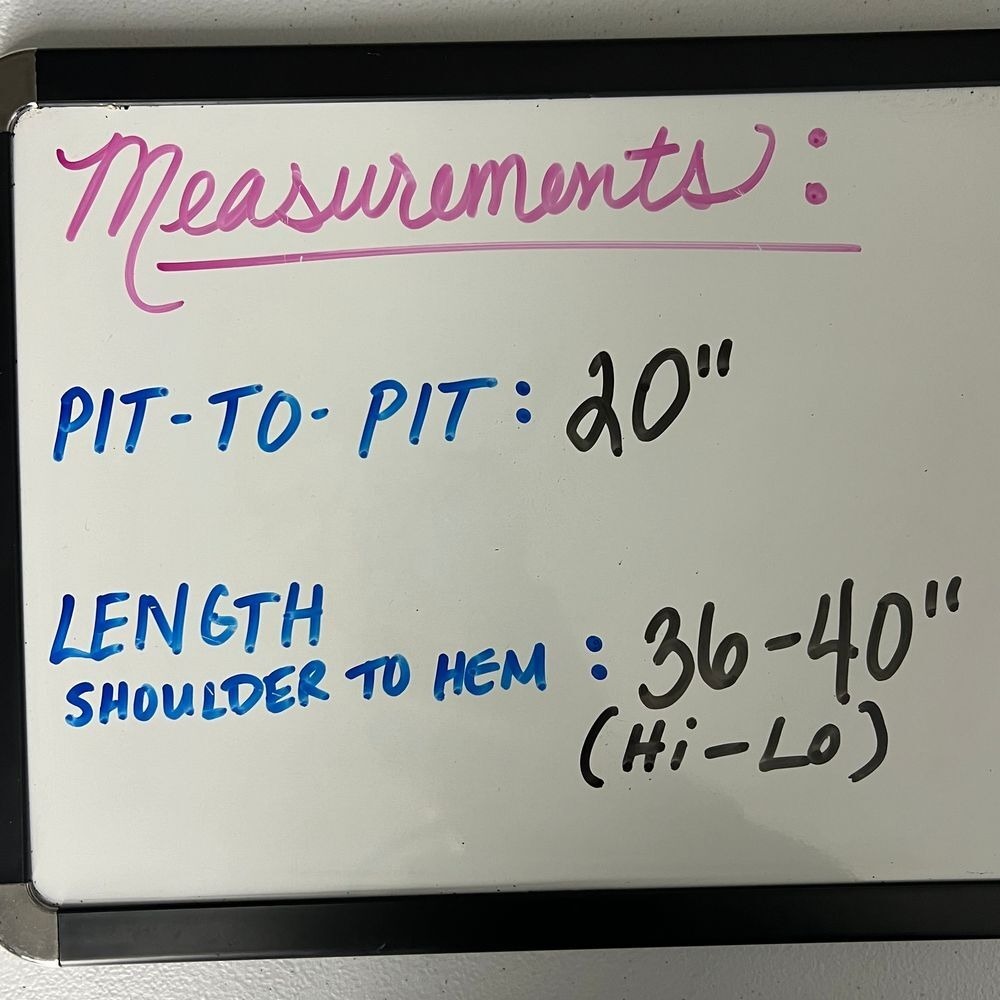 Measurements:
PIT-TO-PIT: 20"
LENGTH
SHOULDER TO HEM : 36-40"
(Hi-Lo)